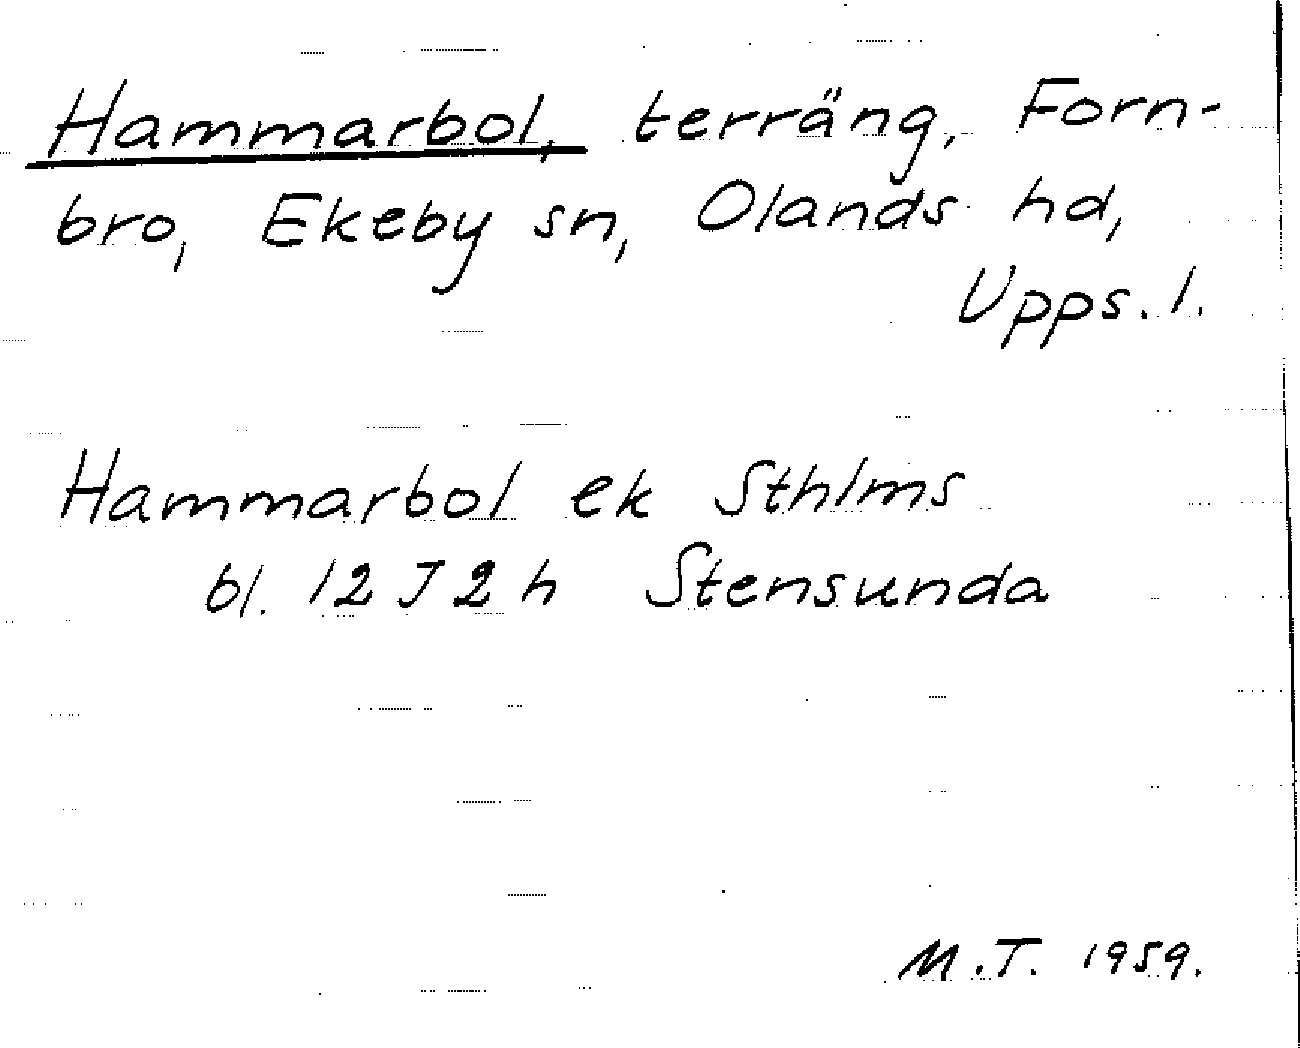 Hammarbol, terräng, Forn-
bro, Ekeby sn, Olands hd,
Upps. l.
Hammarbol ek Sthlms
bl. 12 J 2 h Stensunda
M.T. 1959.